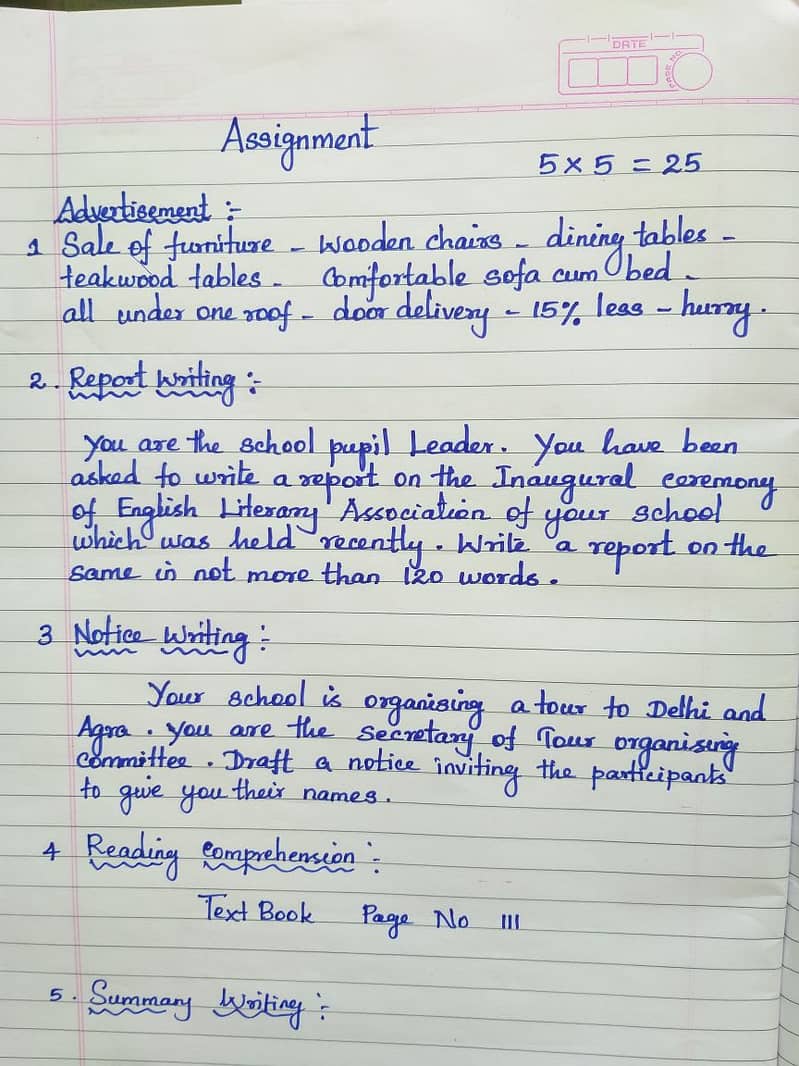 DATE
PAGE NO.
Assignment
5 × 5 = 25
Advertisement :-
1 Sale of furniture - wooden chairs - dining tables -
teakwood tables - Comfortable sofa cum bed -
all under one roof - door delivery - 15% less - hurry.
2. Report Writing :-
You are the school pupil Leader. You have been
asked to write a report on the Inaugural ceremony
of English Literary Association of your school
which was held recently. Write a report on the
same in not more than 120 words.
3 Notice Writing :-
Your school is organising a tour to Delhi and
Agra. You are the Secretary of Tour organising
committee. Draft a notice inviting the participants
to give you their names.
4 Reading Comprehension :-
Text Book Page No 111
5. Summary Writing :-